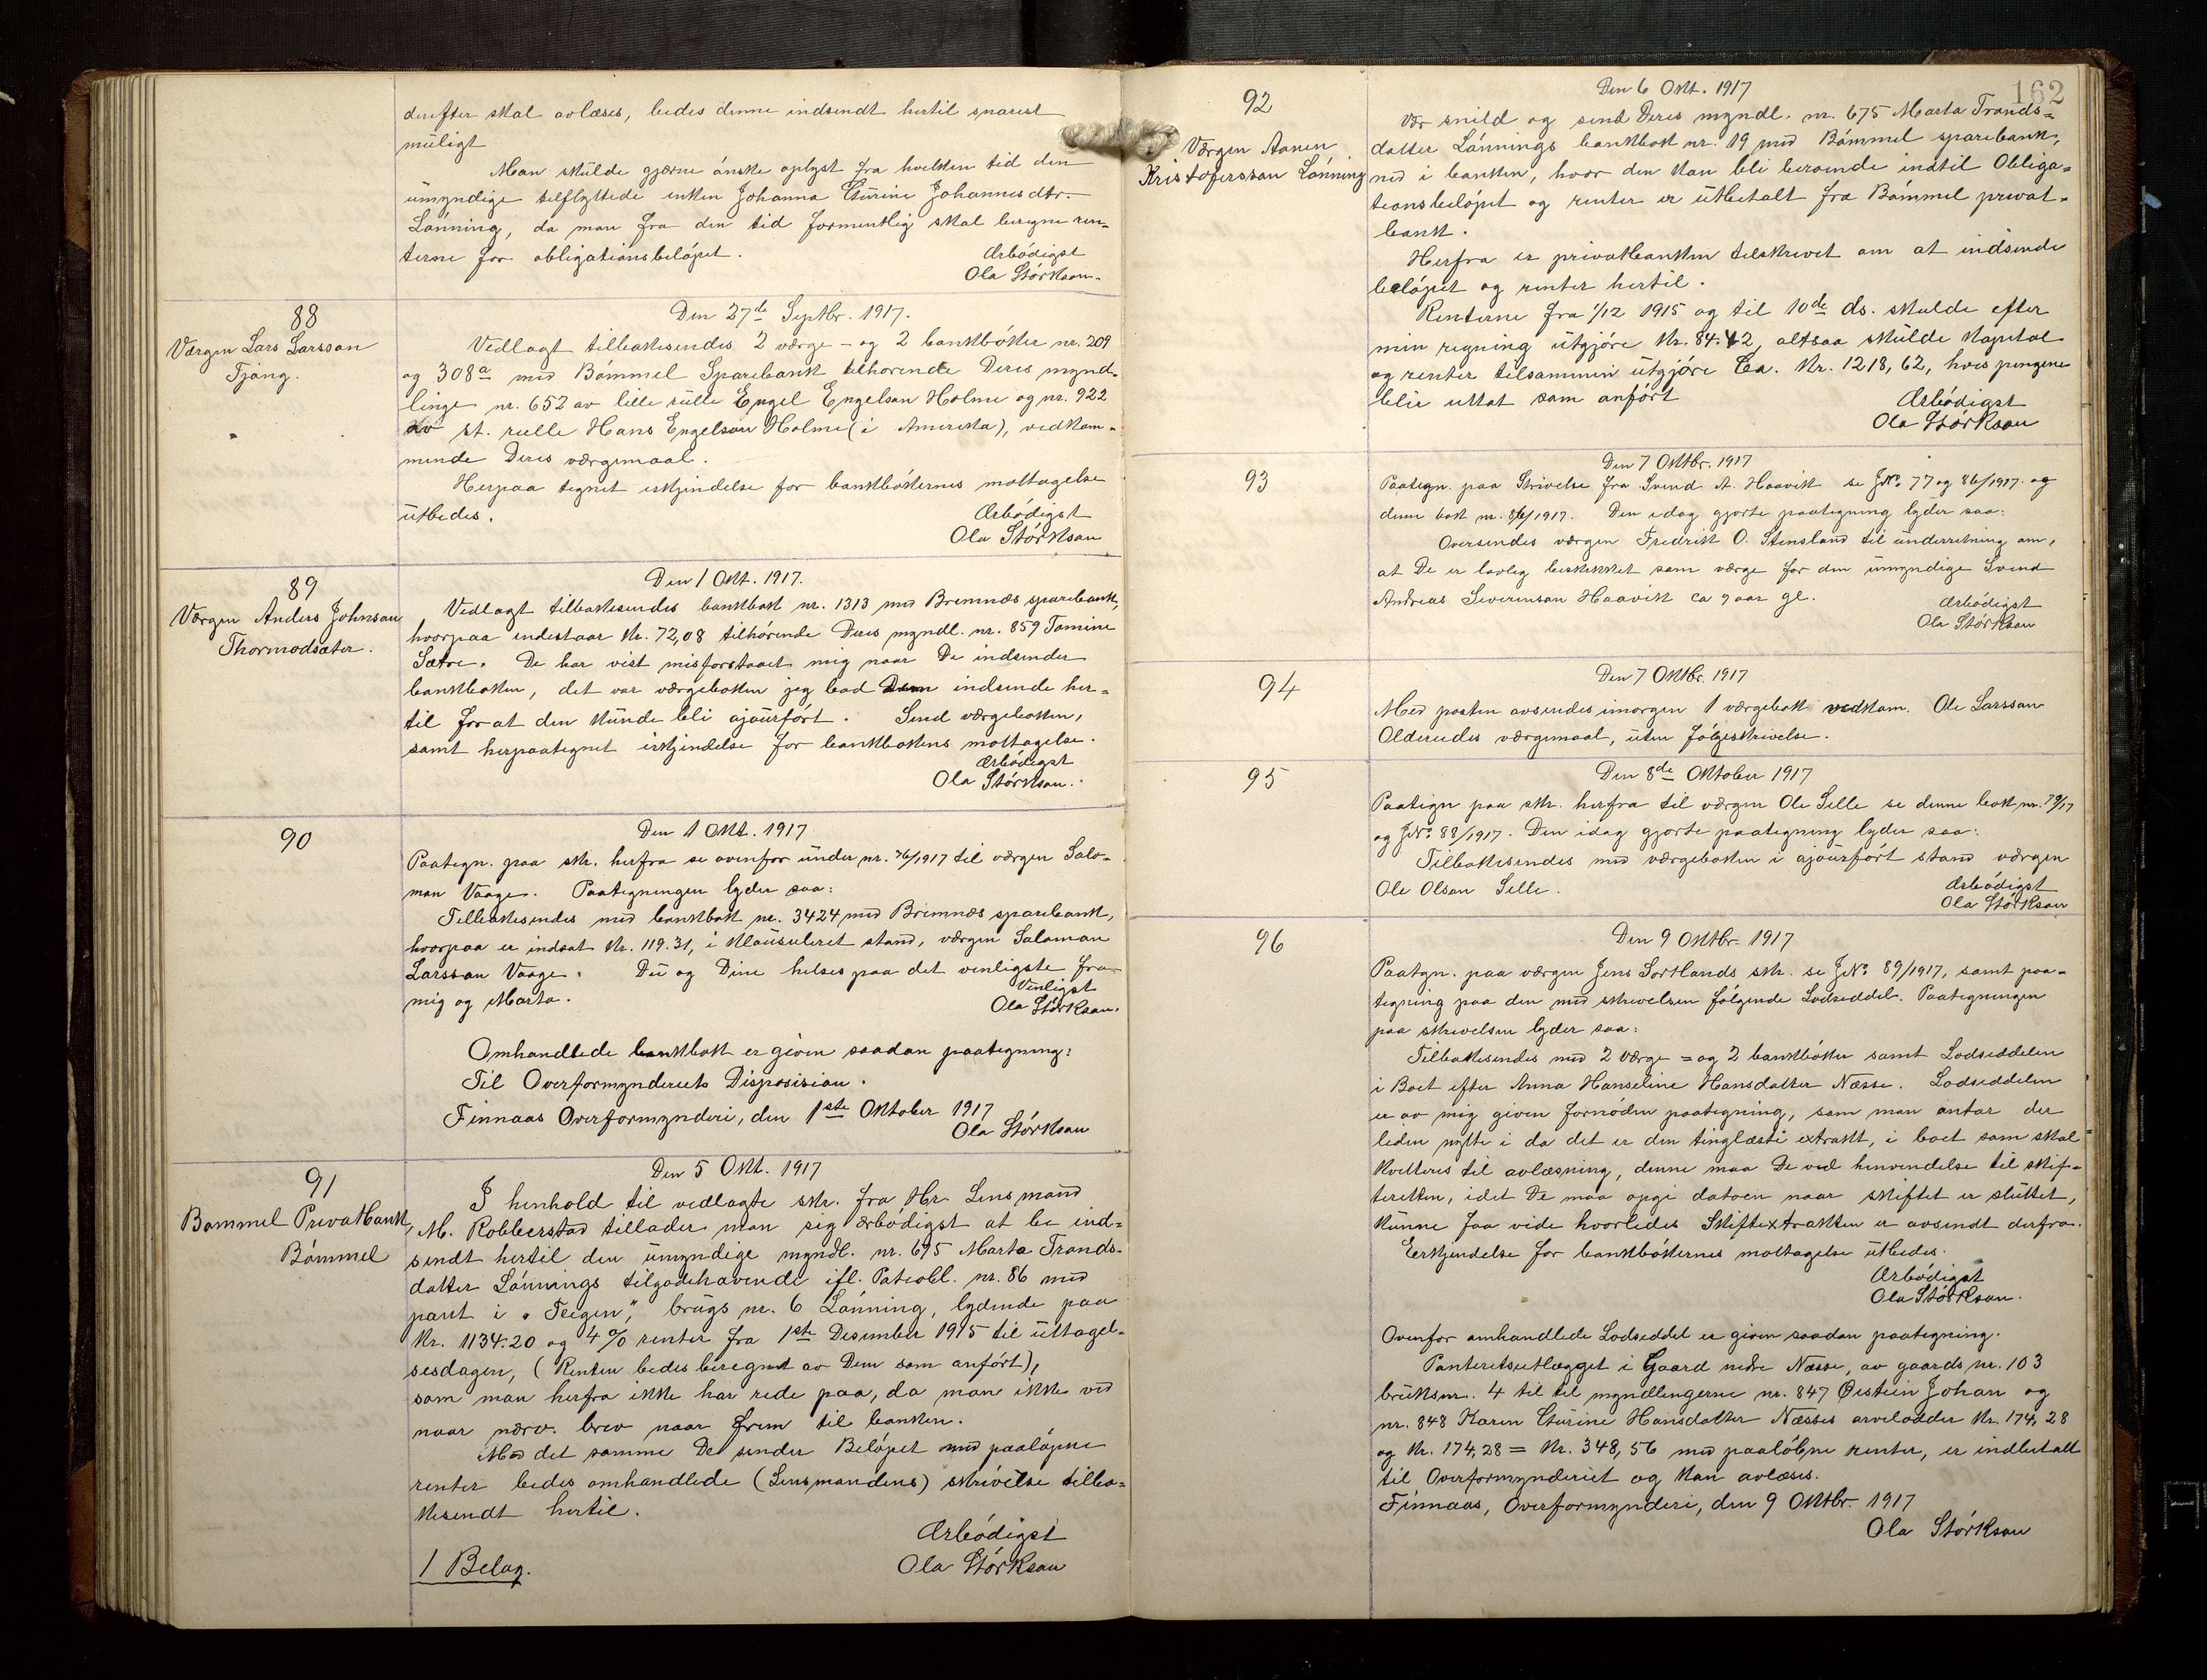 derefter skal avlæses, bedes denne indsendt hertil snarest
müligt
Man skülde gjærne ønske oplyst fra hvilken tid den
ümyndige tilflyttede enken Johanna Türine Johannesdtr.
Lønning, da man fra den tid formentlig skal beregne ren=
terne for obligationsbeløpet.
Ærbödigst
Ola Störkson.
88
Værgen Lars Larsson
Tjong.
Den 27de Septbr. 1917.
Vedlagt tilbakesendes 2 værge- og 2 bankbøker nr. 209
og 308a med Bømmel Sparebank tilhorende Deres mynd=
linge nr. 652 av lille rülle Engel Engelson Holme og nr. 922
av st. rulle Hans Engelson Holme (i Amerika), vedkom=
mende Deres værgemaal.
Herpaa tegnet erkjendelse for bankbökernes mottagelse
ütbedes.
Ærbödigst
Ola Störkson
89
Værgen Anders Johnson
Thormodsæter.
Den 1 Okt. 1917.
Vedlagt tilbakesendes bankbok nr. 1313 med Bremnæs sparebank,
hvorpaa indestaar Kr. 72,08 tilhörende Deres myndl. nr. 859 Tomine
Sætre. De har vist misforstaaet mig naar De indsender
bankboken, det var værgeboken jeg bad Dem indsende her=
til for at den künde bli ajoürfört. Send værgeboken,
samt herpaategnet erkjendelse for bankbokens mottagelse.
Ærbödigst
Ola Störkson.
90
Den 1 Okt. 1917
Paategn. paa skr. herfra se ovenfor ünder nr. 76/1917 til værgen Salo=
mon Vaage. Paategningen lyder saa:
Tilbakesendes med bankbok nr. 3424 med Bremnæs sparebank,
hvorpaa er indsat Kr. 119.31, i klaüsuleret stand, værgen Salomon
Larsson Vaage. Dü og Dine helses paa det venligste fra
mig og Marta.
Venligst
Ola Störkson.
Omhandlede bankbok er given saadan paategning:
Til Overformynderiets Disposision.
Finnaas Overformynderi, den 1ste Oktober 1917
Ola Störkson
91
Bømmel Privatbank,
Bømmel
Den 5 Okt. 1917
I henhold til vedlagte skr. fra Hr. Lensmand
M. Robberstad tillader man sig ærbödigst at be ind=
sendt hertil den ümyndige myndl. nr. 675 Marta Tronds=
datter Lönnings tilgodehavende ifl. Patrobl. nr. 86 med
pant i "Teigen", brügs nr. 6 Lönning, lydende paa
Kr. 1134.20 og 4 % renter fra 1ste Desember 1915 til üttagel=
sesdagen, (Renten bedes beregnet av Dem som anfört),
som man herfra ikke har rede paa, da man ikke ved
naar nærv. brev naar frem til banken.
Med det samme De sender Beløpet med paaløpne
renter bedes omhandlede (Lensmandens) skrivelse tilba=
kesendt hertil.
Ærbödigst
Ola Störkson
1 Belag.
162
92
Værgen Aanen
Kristofersson Lönning
Den 6 Okt. 1917
Vær snild og send Deres myndl. nr. 675 Marta Tronds=
datter Lönnings bankbok nr. 19 med Bömmel sparebank,
ned i banken, hvor den kan bli beroende indtil Obliga=
tionsbelöpet og renter er ütbetalt fra Bömmel privat=
bank.
Herfra er privatbanken tilskrevet om at indsende
belöpet og renter hertil.
Renterne fra 1/12 1915 og til 10de ds. skulde efter
min regning ütgjöre Kr. 84.42, altsaa skülde Kapital
og renter tilsammen ütgjöre Ca. Kr. 1218,62, hvis pengene
blir uttat som anfört
Ærbödigst
Ola Störkson
93
Den 7 Oktbr. 1917
Paategn. paa Skrivelse fra Svend A. Haavik se JNo. 77 og 86/1917 og
denne bok nr. 86/1917. Den idag gjorte paategning lyder saa:
Oversendes værgen Fredrik O. Stensland til ünderretning om,
at De er lovlig beskikket som værge for den ümyndige Svend
Andreas Severinson Haavik ca 9 aar gl.
Ærbödigst
Ola Störkson
94
Den 7 Oktbr. 1917
Med posten avsendes imorgen 1 værgebok vedkom. Ole Larsson
Oldereides værgemaal, üten følgeskrivelse.
95
Den 8de Oktober 1917
Paategn paa skr. herfra til værgen Ole Selle se denne bok nr. 79/17
og JNo. 88/1917. Den idag gjorte paategning lyder saa:
Tilbakesendes med værgeboken i ajoürfört stand værgen
Ole Olson Selle.
Ærbödigst
Ola Störkson
96
Den 9 Oktbr. 1917
Paategn. paa værgen Jens Sortlands skr. se JNo. 89/1917, samt paa=
tegning paa den med skrivelsen følgende Lodseddel. Paategningen
paa skrivelsen lyder saa:
Tilbakesendes med 2 værge= og 2 bankböker samt Lodseddelen
i Boet efter Anna Hanseline Hansdatter Næsse. Lodseddelen
er av mig given fornöden paategning, som man antar der
liden nytte i da det er den tinglæste extrakt, i boet som skal
kvitteres til avlæsning, denne maa De ved henvendelse til skif=
teretten, idet De maa opgi datoen naar skiftet er slüttet,
künne faa vide hvorledes Skifteextrakten er avsendt derfra.
Erkjendelse for bankbökernes mottagelse ütbedes.
Ærbödigst
Ola Störkson.
Ovenfor omhandlede Lodseddel er given saadan paategning.
Panteretsutlægget i Gaard nedre Næsse, av gaards nr. 103
brüksnr. 4 til til myndlingerne nr. 847 Øistein Johan og
nr. 848 Karen Türine Hansdatter Næsses arvelodder Kr. 174,28
og Kr. 174,28 = Kr. 348,56 med paalöpne renter, er indbetalt
til Overformynderiet og kan avlæses.
Finnaas, Overformynderi, den 9 Oktbr. 1917
Ola Störkson